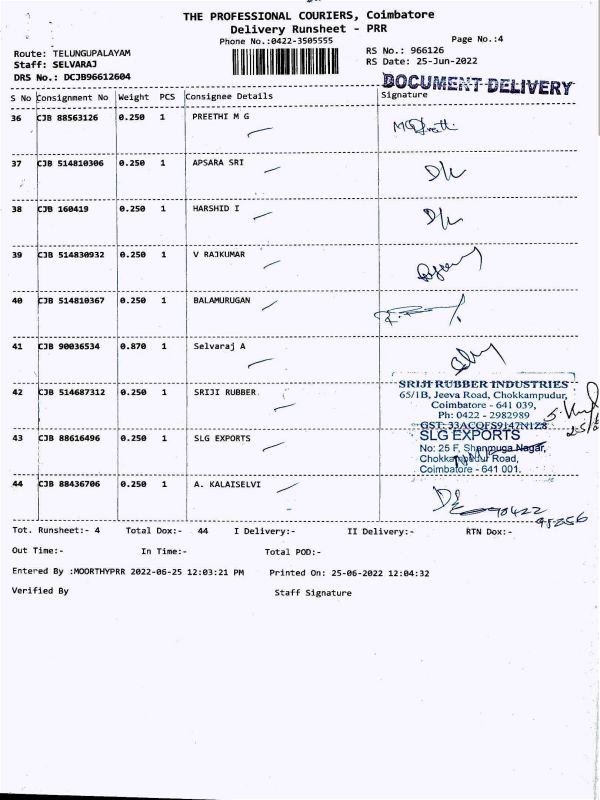 THE PROFESSIONAL COURIERS, Coimbatore
Delivery Runsheet - PRR
Phone No.:0422-3505555
Page No.:4
Route: TELUNGUPALAYAM
RS No.: 966126
Staff: SELVARAJ
RS Date: 25-Jun-2022
DRS No.: DCJB96612604
DOCUMENT DELIVERY
S No Consignment No Weight PCS Consignee Details Signature
36 CJB 88563126 0.250 1 PREETHI M G
37 CJB 514810306 0.250 1 APSARA SRI
38 CJB 160419 0.250 1 HARSHID I
39 CJB 514830932 0.250 1 V RAJKUMAR
40 CJB 514810367 0.250 1 BALAMURUGAN
41 CJB 90036534 0.870 1 Selvaraj A
42 CJB 514687312 0.250 1 SRIJI RUBBER
SRIJI RUBBER INDUSTRIES
65/1B, Jeeva Road, Chokkampudur,
Coimbatore - 641 039,
Ph: 0422 - 2982989
GST: 33ACQFS9147N1Z8
43 CJB 88616496 0.250 1 SLG EXPORTS
SLG EXPORTS
No: 25 F, Shanmuga Nagar,
Chokkampudur Road,
Coimbatore - 641 001.
44 CJB 88436706 0.250 1 A. KALAISELVI
98256
Tot. Runsheet:- 4 Total Dox:- 44 I Delivery:- II Delivery:- RTN Dox:-
Out Time:- In Time:- Total POD:-
Entered By :MOORTHYPRR 2022-06-25 12:03:21 PM Printed On: 25-06-2022 12:04:32
Verified By Staff Signature